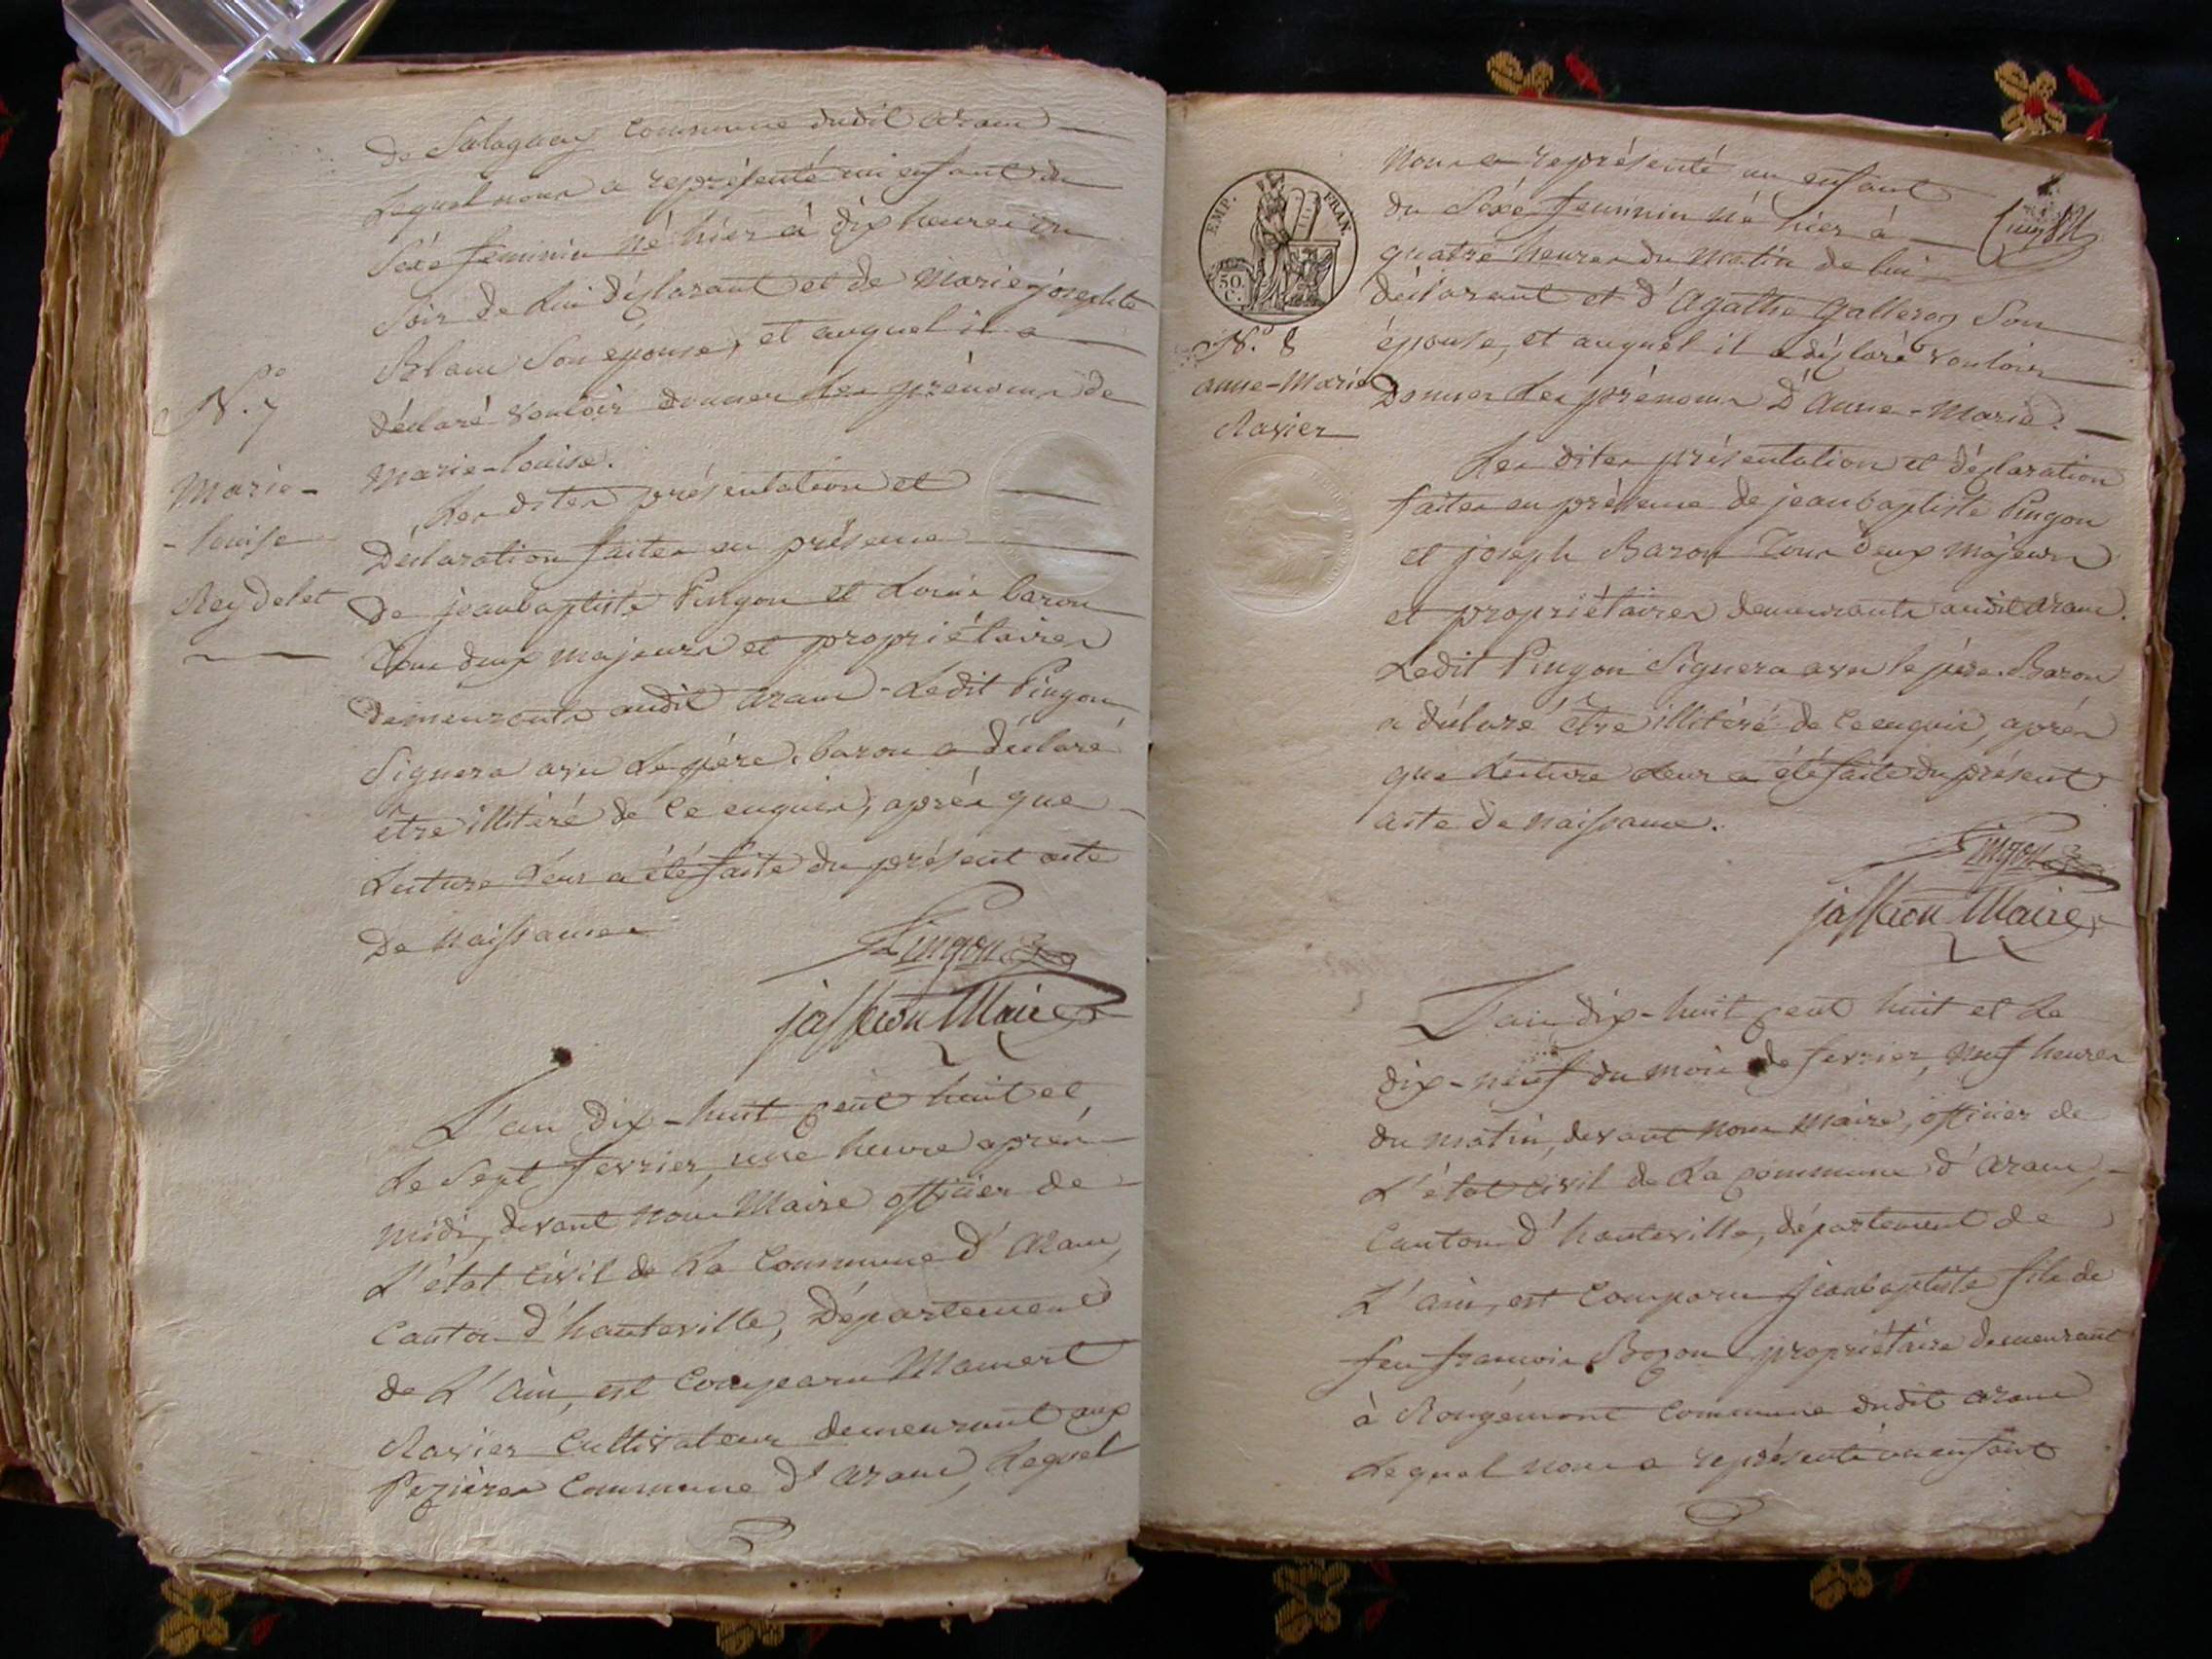 de Salagnay Commune dudit aranc
Lequel nous a représenté un enfant du
Séxe féminin né hier à dix heures du
Soir de Lui déclarant et de Marie-josephte
Son épouse, et auquel il a
déclaré vouloir donner les prénoms de
Marie-louise.
Les dites présentation et
Déclaration faites en présence
de jean baptiste Pingon et Louis baron
Tous deux majeurs et propriétaires
demeurants audit aranc - Ledit Pingon
Signera avec Le père. baron a déclaré
être illitéré de ce enquis, après que
Lecture leur a été faite du présent acte
De Naissance
Pingon
jasseron Maire
N.º 7
Marie-
-louise
Reydelet
L'an dix-huit cent huit et
Le Sept fevrier, une heure après
midi, devant nous Maire officier de
L'état Civil de La Commune d'Aranc,
Canton d'hauteville, Département
de L'ain, est Comparu Mamert
Ravier Cultivateur demeurant aux
Pezières Commune d'aranc, Lequel
EMP. FRAN.
50 C.
N.º 8
anne-Marie
Ravier
Nous a représenté un enfant
du Séxe féminin né hier à
quatre heures du Matin de lui
déclarant et d'Agathe Galleron Son
épouse, et auquel il a déclaré vouloir
Donner Les prénoms D'Anne-Marie.
Les dites présentation et déclaration
faites en présence de jean baptiste Pingon
et joseph Baron Tous deux Majeurs
et propriétaires demeurants audit aranc.
Ledit Pingon Signera avec le père. Baron
a déclaré être illitéré de ce enquis, après
que Lecture Leur a été faite du présent
acte de Naissance.
Pingon
jasseron Maire
L'an dix-huit cent huit et Le
dix-neuf du mois de fevrier, Neuf heures
du matin, devant Nous Maire, officier de
L'état civil de La commune d'aranc,
Canton d'hauteville, département de
L'ain, est Comparu jean baptiste fils de
feu françois Bozon propriétaire demeurant
à Rougemont Commune dudit aranc
Lequel nous a représenté un enfant